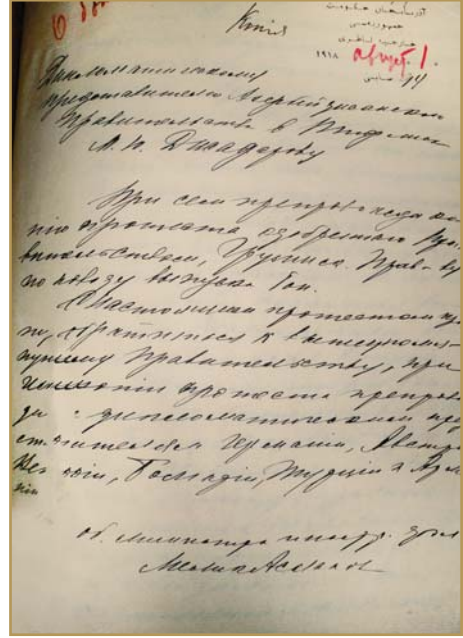 Копія
август 1.
١٩١٨
Дипломатическому
представителю Азербайджанского
Правительства в
М. Ю. Джафарову
При сем препровождаю ко-
пію протеста одобренного Пра-
вительством, Грузинск. Прав-ву
по поводу выпуска бон.
С настоящим протестом
обратиться к вышеупомя-
нутому Правительству, при
протеста препрово-
дить дипломатическим пред
ставителям Германіи, Австро
Венгріи, Болгаріи, Турціи и Арме
ніи
об. министра иностр. дел